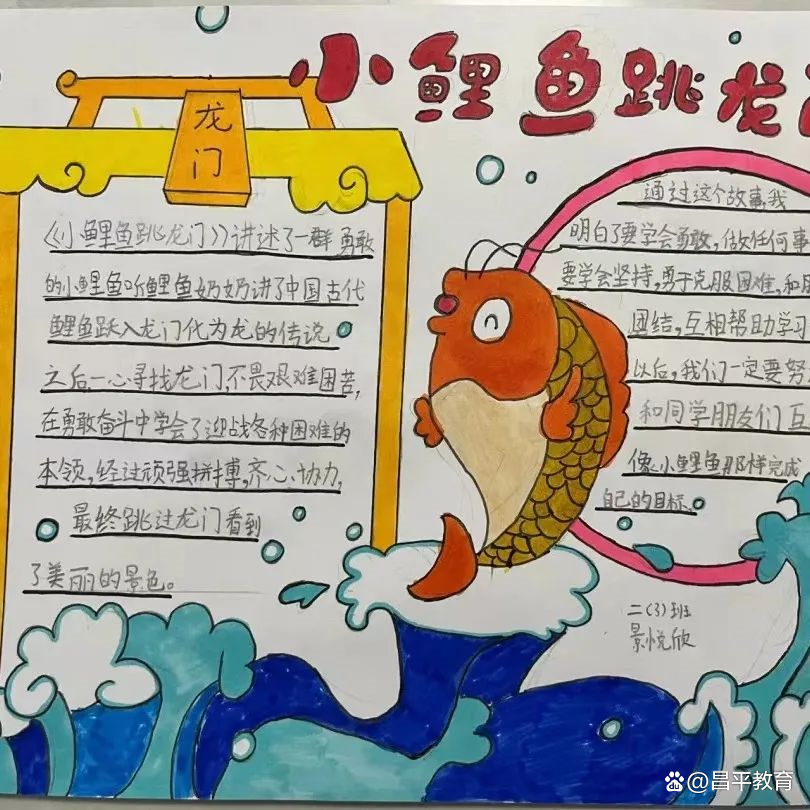 小鲤鱼跳龙
龙门
《小鲤鱼跳龙门》讲述了一群勇敢
的小鲤鱼听鲤鱼奶奶讲了中国古代
鲤鱼跃入龙门化为龙的传说
之后,一心寻找龙门,不畏艰难困苦,
在勇敢奋斗中学会了迎战各种困难的
本领,经过顽强拼搏,齐心协力,
最终跳过龙门看到
了美丽的景色。
通过这个故事,我
明白了要学会勇敢,做任何事
要学会坚持,勇于克服困难,和朋
团结,互相帮助学习
以后,我们一定要努
和同学朋友们互
像《小鲤鱼》那样完成
自己的目标。
二(3)班
景悦欣
@昌平教育